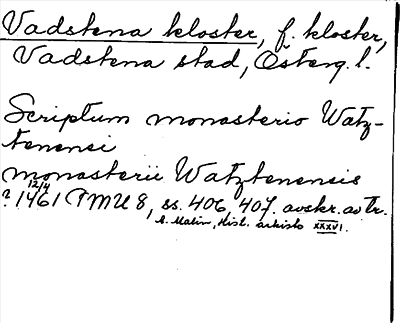 Vadstena kloster, f. kloster,
Vadstena stad, Österg. l.
Scriptum monasterio Watz-
tenensi
monasterii Watztenensis
12/4
? 1461 FMU 8, ss. 406, 407. avskr. av tr.
A. Malin, Hist. arkisto XXXVI.